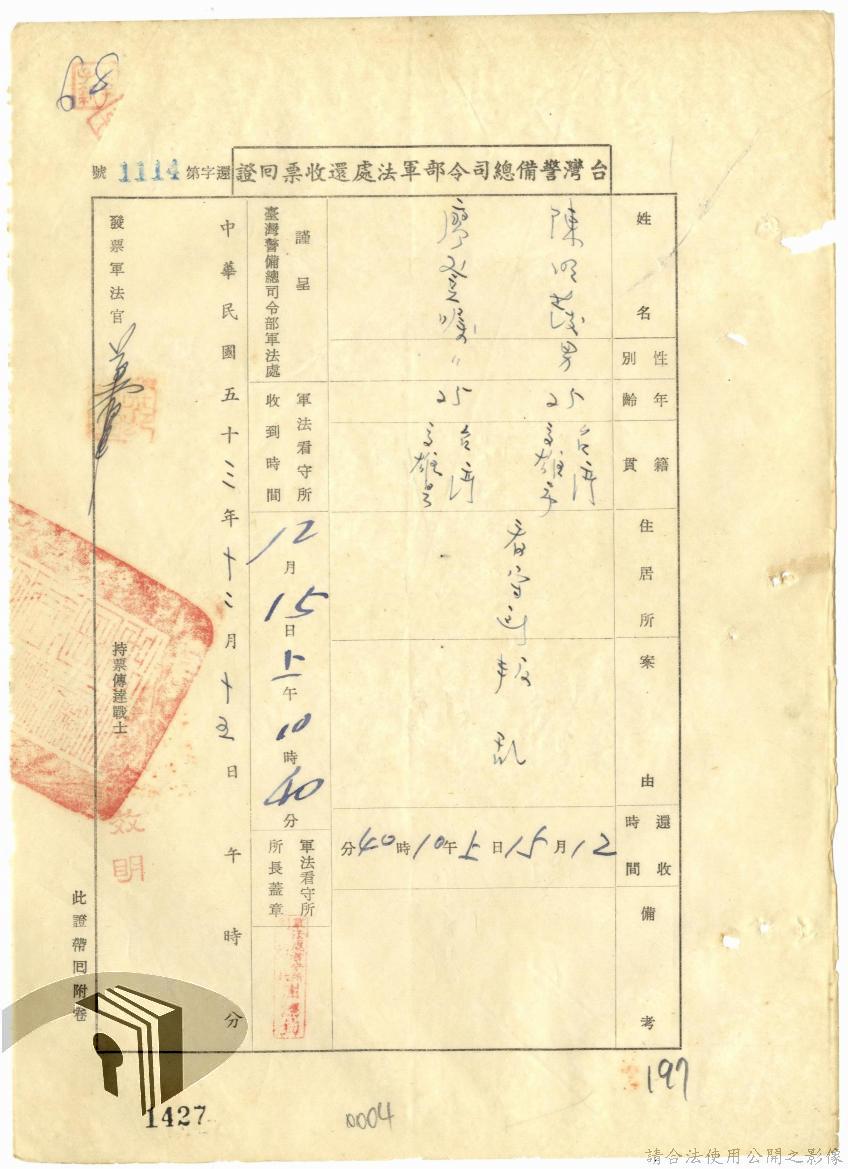 68
台灣警備總司令部軍法處還收票回證
還字第1114號
姓名
陳
男
廖登
〃
性別
年齡
25
25
籍貫
台灣
高雄市
台灣
高雄
住居所
看守所
案由
叛亂
還收時間
12月15日上午10時40分
備考
謹呈
臺灣警備總司令部軍法處
軍法看守所
收到時間
12月15日上午10時40分
軍法看守所
所長蓋章
中華民國五十三年十二月十五日午時分
發票軍法官
持票傳達戰士
效明
此證帶回附卷
197
1427
0004
請合法使用公開之影像